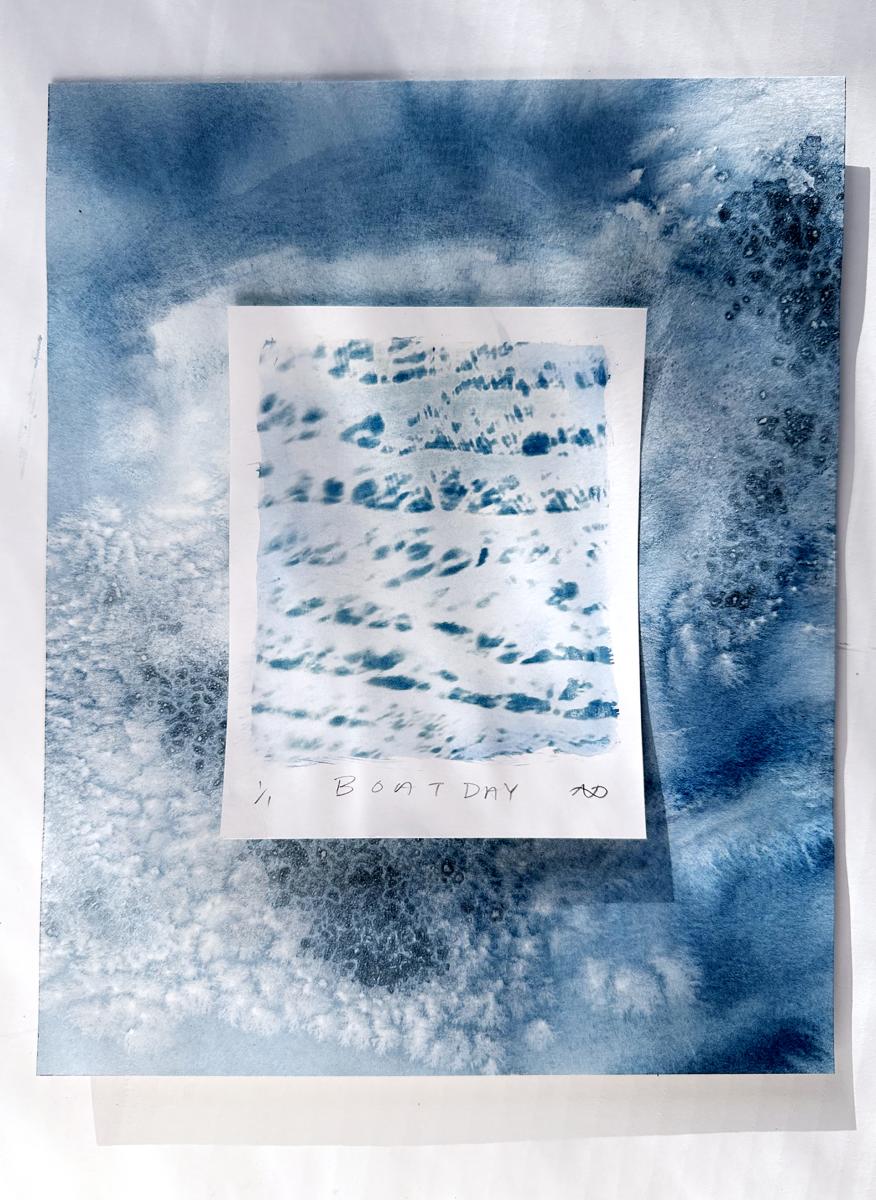 1/1 BOATDAY AD